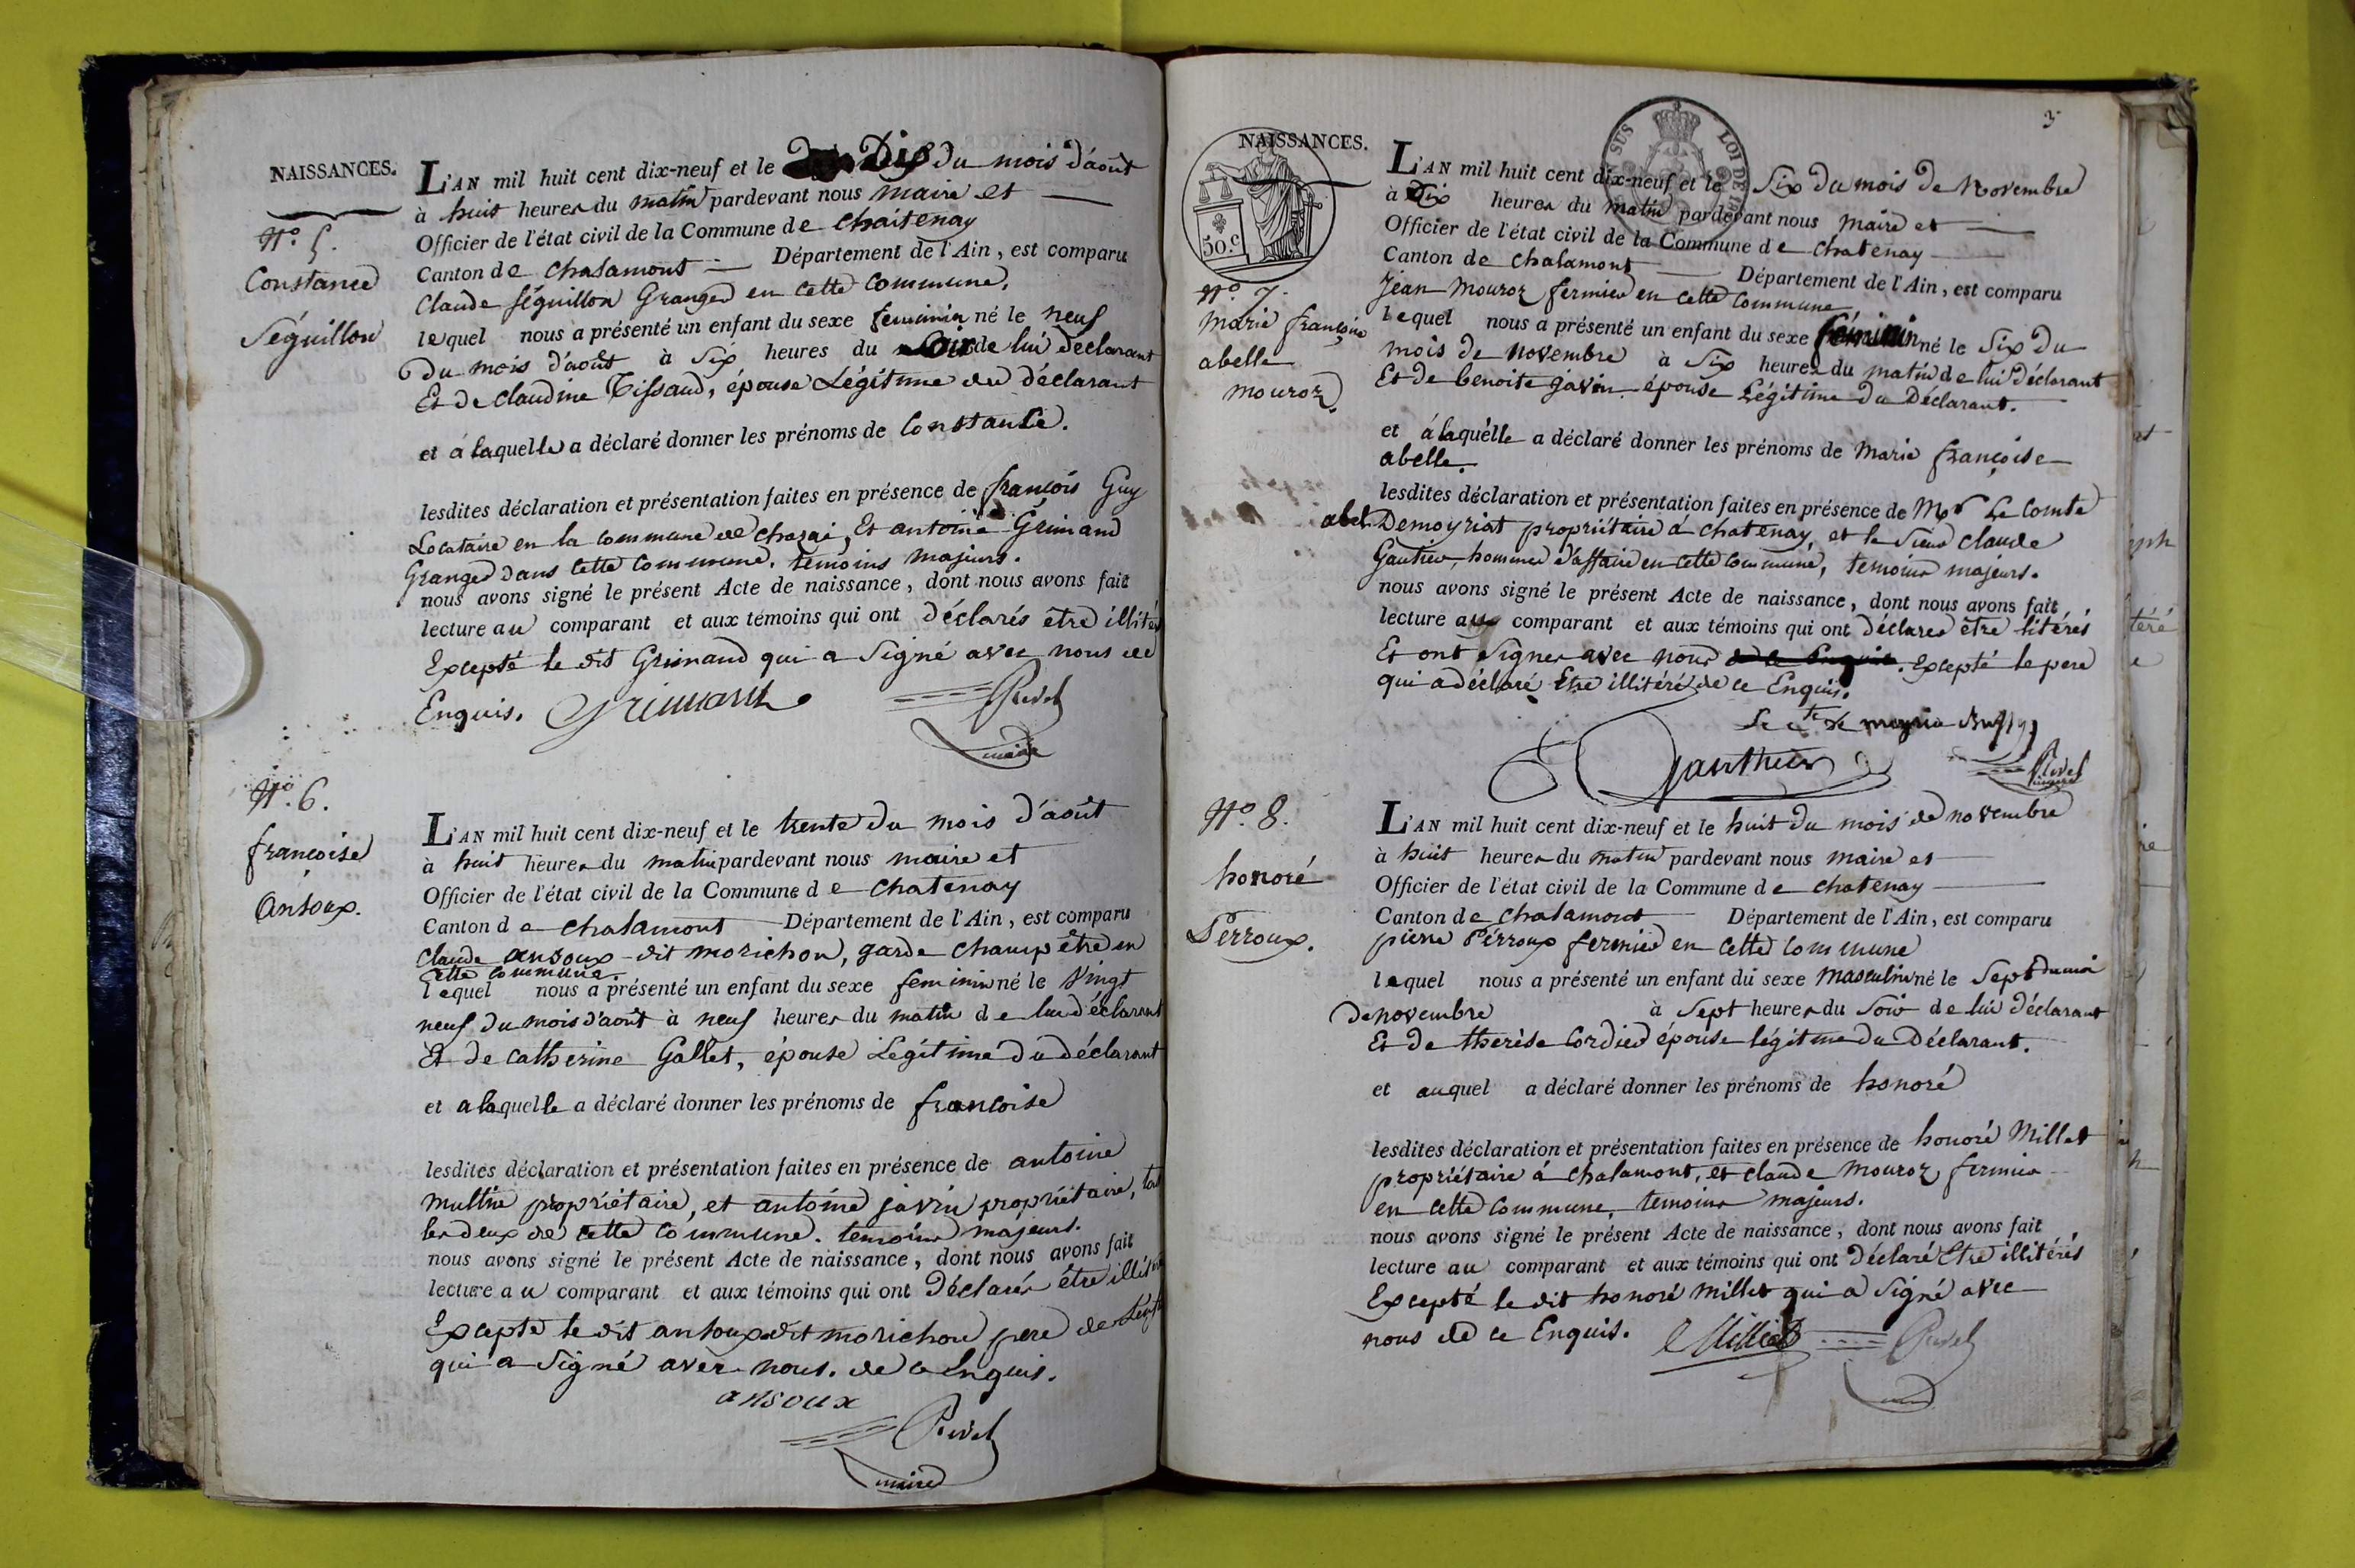 NAISSANCES.
N.° 5.
Constance
Séguillon
L'AN mil huit cent dix-neuf et le Dix du mois d'août
à huit heures du matin pardevant nous maire et
Officier de l'état civil de la Commune de Chaitenay
Canton de Chalamont Département de l'Ain, est comparu
Claude Séguillon Granger en cette commune,
lequel nous a présenté un enfant du sexe feminin né le neuf
du mois d'août à Six heures du Soir de lui déclarant
Et de Claudine Tissaud, épouse Légitime du déclarant
et á laquelle a déclaré donner les prénoms de Constance.
lesdites déclaration et présentation faites en présence de françois Guy
Locataire en la commune de Et antoine Grimand
Granger dans cette commune. temoins majeurs.
nous avons signé le présent Acte de naissance, dont nous avons fait
lecture au comparant et aux témoins qui ont Déclarés être illitér
Excepté le dit Grimand qui a Signé avec nous de
Enquis. Grimand Rivel
maire
N.° 6.
françoise
Ansoux.
L'AN mil huit cent dix-neuf et le trente du mois d'août
à huit heures du matin pardevant nous maire et
Officier de l'état civil de la Commune de Chatenay
Canton de Chalamont Département de l'Ain, est comparu
Claude ansoux dit morichon, garde champêtre en
cette commune.
lequel nous a présenté un enfant du sexe feminin né le Vingt
neuf du mois d'août à neuf heures du matin de lui déclarant
Et de Catherine Gallet, épouse Légitime du déclarant
et a laquelle a déclaré donner les prénoms de françoise
lesdites déclaration et présentation faites en présence de antoine
propriétaire, et antoine javin propriétaire, tout
les deux de cette commune. temoins majeurs.
nous avons signé le présent Acte de naissance, dont nous avons fait
lecture au comparant et aux témoins qui ont Déclarés être
Excepté le dit ansoux dit morichon pere de
qui a Signé avec nous. de ce Enquis.
ansoux
Rivel
maire
3
NAISSANCES.
50.c
SUS LOI DE
N.° 7.
Marie françoise
abelle
mouroz.
L'AN mil huit cent dix-neuf et le Six du mois de Novembre
à Dix heures du matin pardevant nous Maire et
Officier de l'état civil de la Commune de Chatenay
Canton de Chalamont Département de l'Ain, est comparu
Jean Mouroz fermier en cette commune
lequel nous a présenté un enfant du sexe féminin né le Six du
mois de Novembre à Six heures du matin de lui Déclarant
Et de benoite javin épouse Légitime du Déclarant.
et á laquélle a déclaré donner les prénoms de Marie françoise
abelle.
lesdites déclaration et présentation faites en présence de Mr Le Comte
abel Demoyriat propriétaire á Chatenay, et le Sieur Claude
Gautier, homme d'affaire en cette commune, temoins majeurs.
nous avons signé le présent Acte de naissance, dont nous avons fait
lecture au comparant et aux témoins qui ont Déclarer être litérés
Et ont Signer avec nous Excepté le pere
qui a déclaré Etre illitéré de ce Enquis.
Gauthier
Rivel
maire
N.° 8.
honoré
Perroux.
L'AN mil huit cent dix-neuf et le huit du mois de novembre
à huit heures du matin pardevant nous maire et
Officier de l'état civil de la Commune de Chatenay
Canton de Chalamont Département de l'Ain, est comparu
pierre Pérroux fermier en cette commune
lequel nous a présenté un enfant du sexe masculin né le Sept du moi
De novembre à Sept heures du Soir de lui déclarant
Et de therèse Cordier épouse légitime du Déclarant.
et auquel a déclaré donner les prénoms de honoré
lesdites déclaration et présentation faites en présence de honoré Millet
propriétaire á Chalamont, et Claude Mouroz fermier
en cette commune, temoins majeurs.
nous avons signé le présent Acte de naissance, dont nous avons fait
lecture au comparant et aux témoins qui ont Déclaré Etre illitérés
Excepté le dit honoré Millet qui a Signé avec
nous de ce Enquis. Milliet Rivel